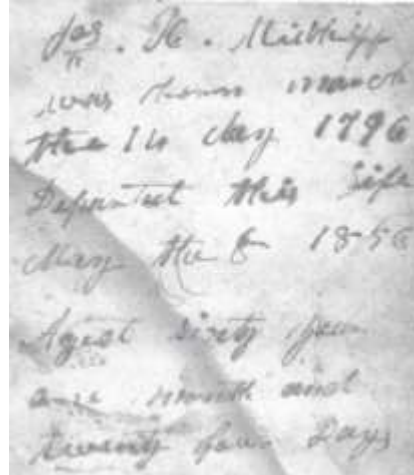 Jos. H. Midkiff
was born march
the 10 day 1796
Departed this life
May the 6 1856
Aged Sixty years
one month and
twenty four Days